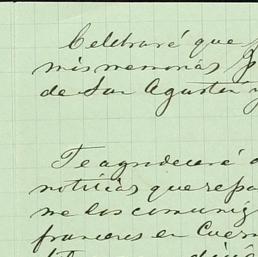 Celebraré que
mis memorias
de San Agustin y
Te agradeceré
noticias que
me los comuniq
franceses en Cuern